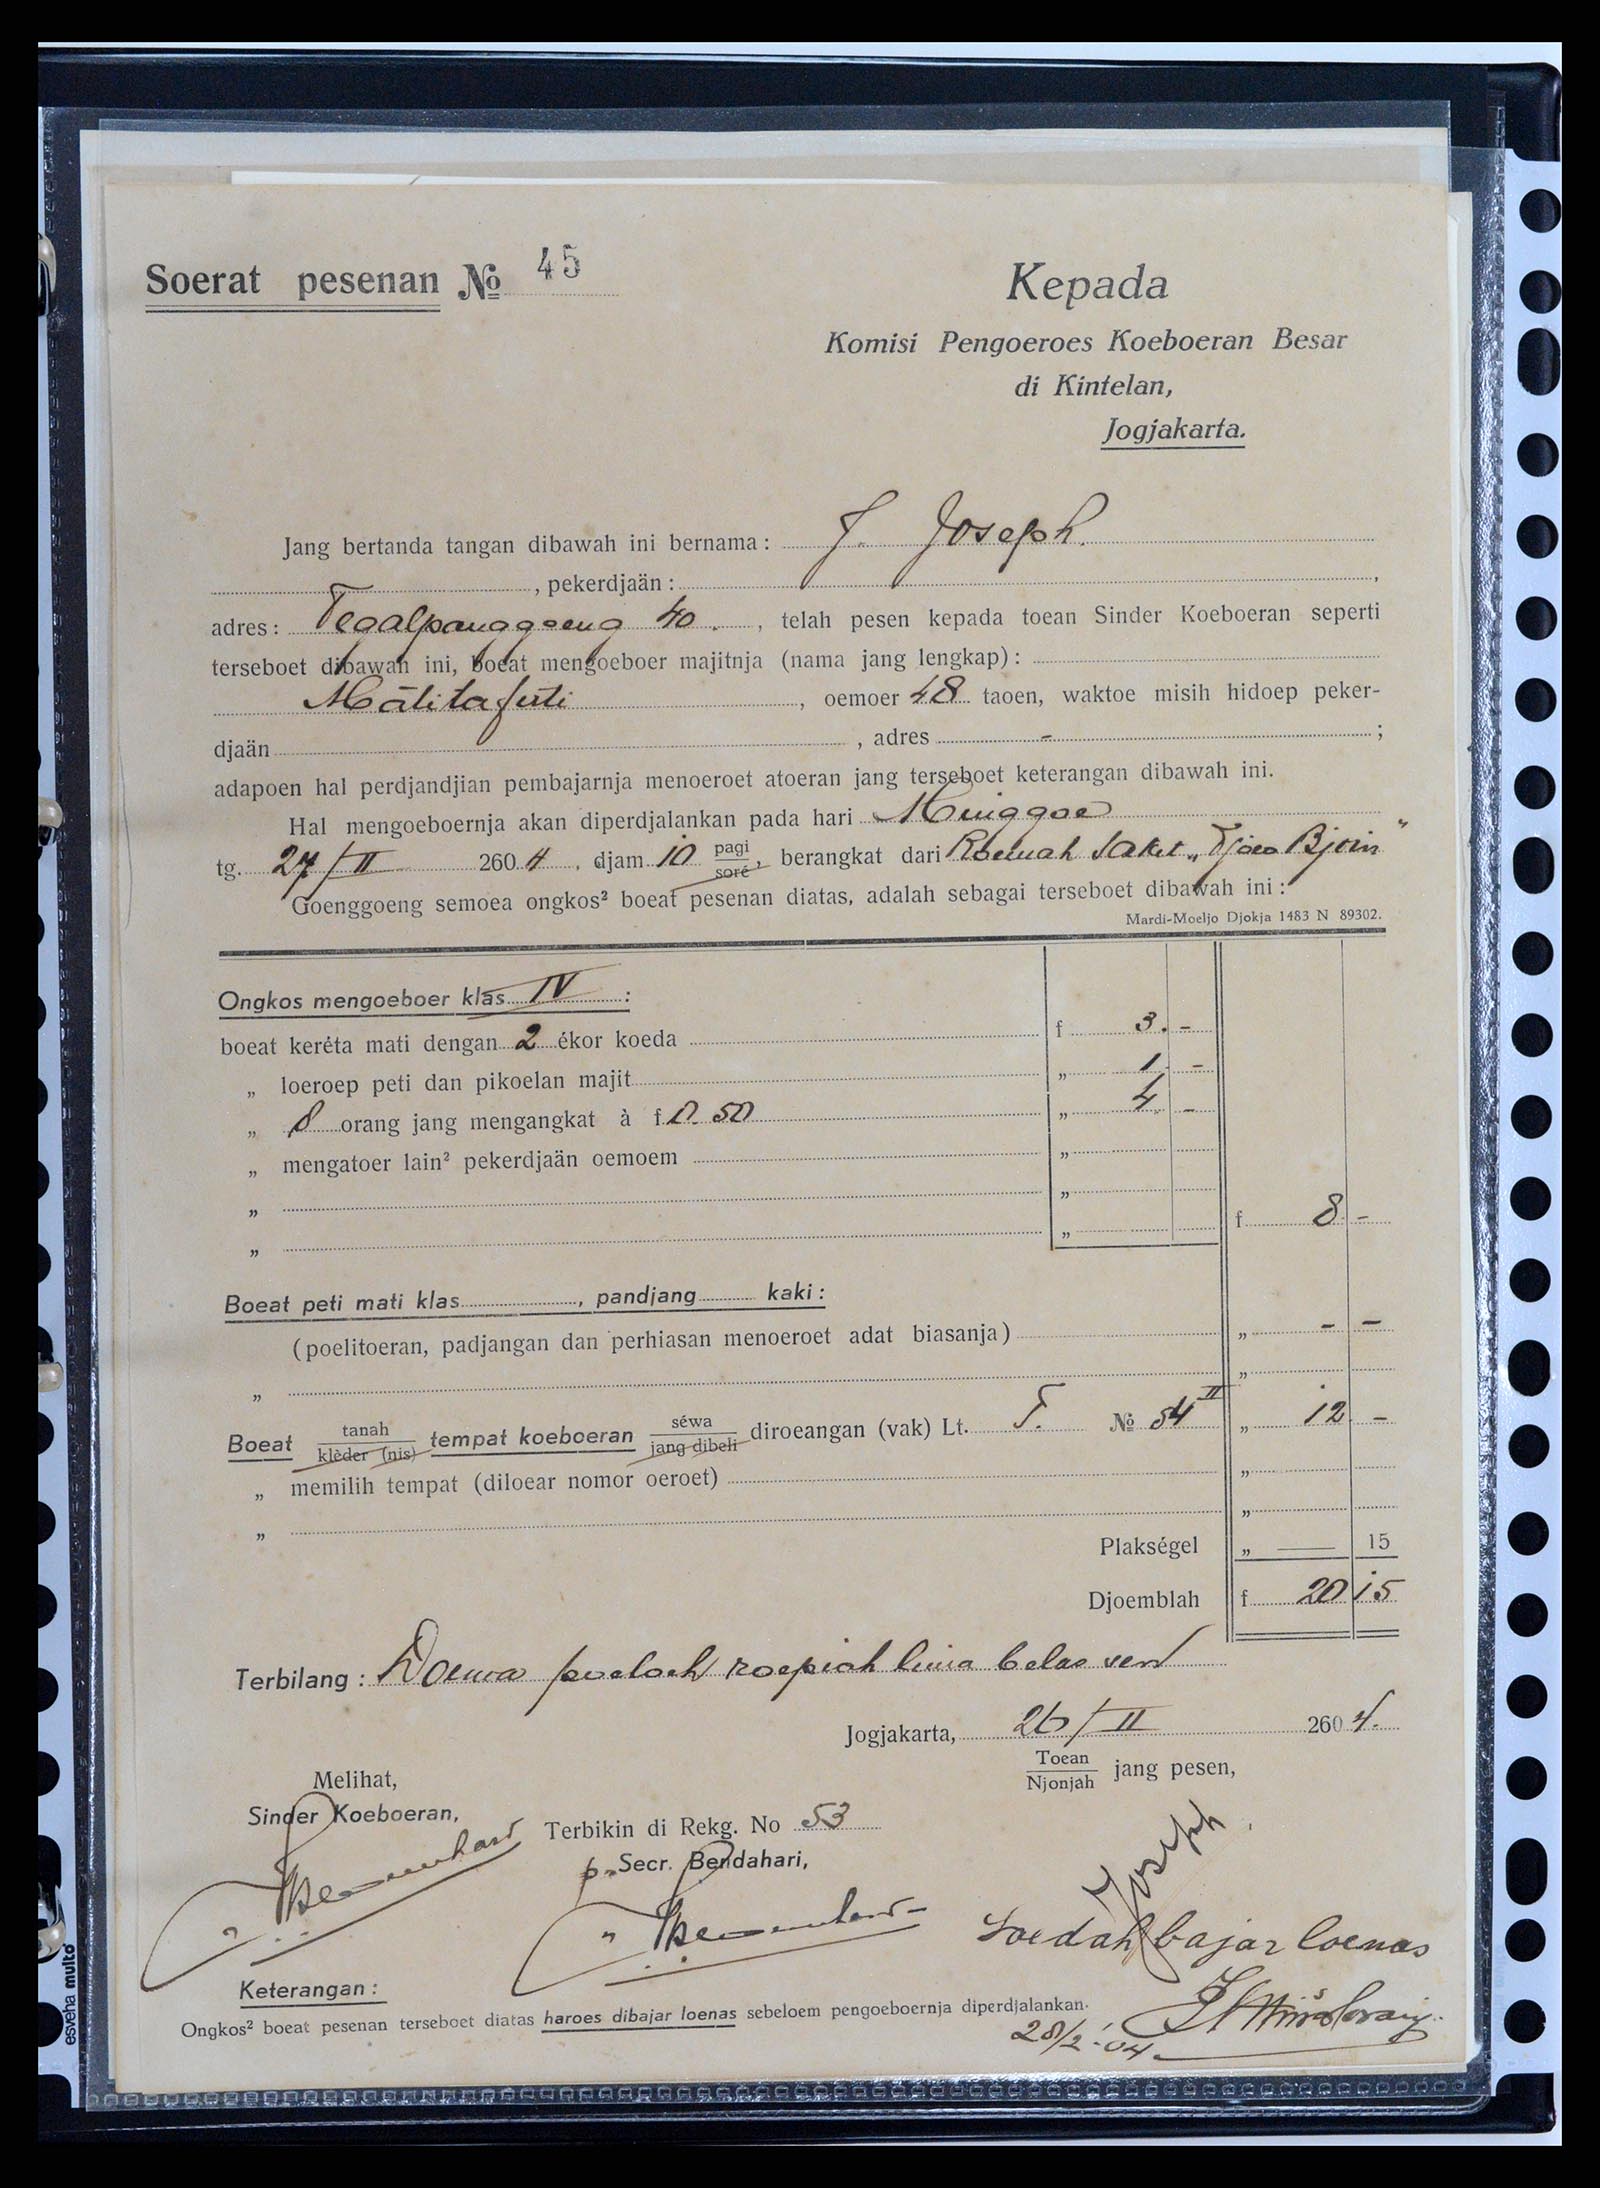 Soerat pesenan № 45
Kepada
Komisi Pengoeroes Koeboeran Besar
di Kintelan,
Jogjakarta.
Jang bertanda tangan dibawah ini bernama: J. Joseph.
, pekerdjaän: ,
adres: Tegalpanggoeng 40. , telah pesen kepada toean Sinder Koeboeran seperti
terseboet dibawah ini, boeat mengoeboer majitnja (nama jang lengkap):
, oemoer 48 taoen, waktoe misih hidoep peker-
djaän , adres - ;
adapoen hal perdjandjian pembajarnja menoeroet atoeran jang terseboet keterangan dibawah ini.
Hal mengoeboernja akan diperdjalankan pada hari Minggoe
tg. 27/II 2604, djam 10 pagi/soré, berangkat dari Roemah Saket „
Goenggoeng semoea ongkos² boeat pesenan diatas, adalah sebagai terseboet dibawah ini:
Mardi-Moeljo Djokja 1483 N 89302.
Ongkos mengoeboer klas IV :
boeat keréta mati dengan 2 ékor koeda f 3. -
„ loeroep peti dan pikoelan majit „ 1. -
„ 8 orang jang mengangkat à f 0.50 „ 4. -
„ mengatoer lain² pekerdjaän oemoem „
„ „
„ „ f 8 -
Boeat peti mati klas , pandjang kaki:
(poelitoeran, padjangan dan perhiasan menoeroet adat biasanja) „ - -
„ „
Boeat tanah/klèder (nis) tempat koeboeran séwa/jang dibeli diroeangan (vak) Lt. F. № 54 II „ 12 -
„ memilih tempat (diloear nomor oeroet) „
„ „
Plakségel „ — 15
Djoemblah f 20 15
Terbilang: Doewa poeloeh roepiah lima belas sen
Jogjakarta, 26/II 2604.
Toean/Njonjah jang pesen,
Melihat,
Sinder Koeboeran,
Terbikin di Rekg. No 53
p. Secr. Bendahari,
Joseph
Soedah bajar loenas
Keterangan:
Ongkos² boeat pesenan terseboet diatas haroes dibajar loenas sebeloem pengoeboernja diperdjalankan.
28/2-'04
esveha multo